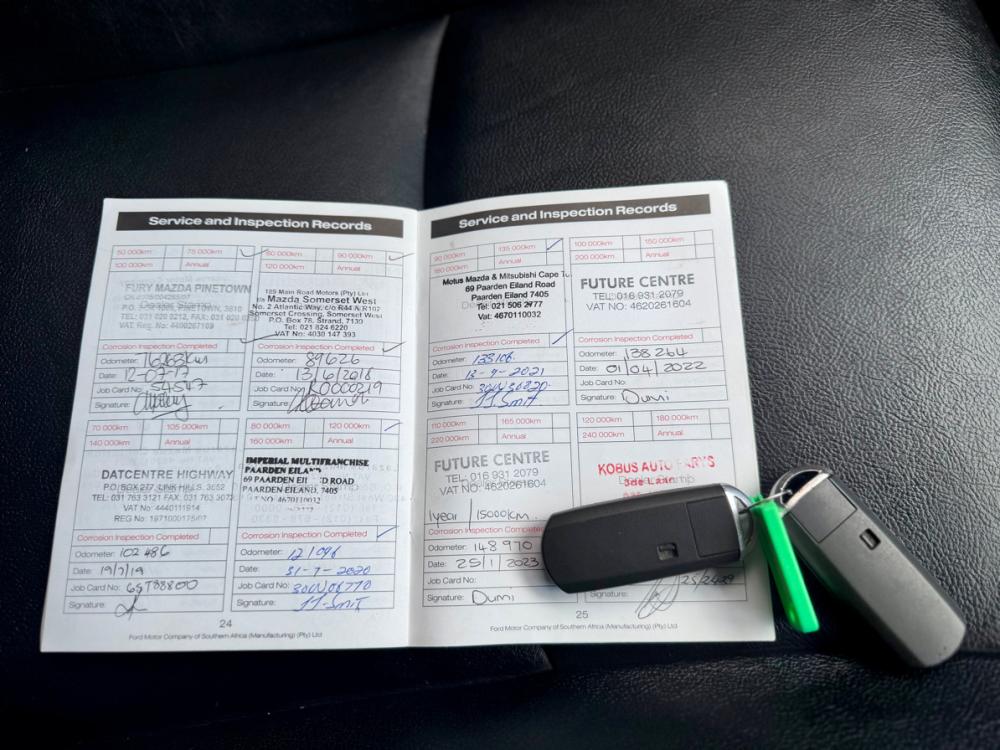 Service and Inspection Records
50 000km 75 000km
100 000km Annual
FURY MAZDA PINETOWN
Dealer Stamp
VAT Reg. No: 4400267109
Corrosion Inspection Completed
Odometer: 76068km
Date: 12-07-17
Job Card No: 54547
Signature:
60 000km 90 000km
120 000km Annual
189 Main Road Motors (Pty) Ltd
Mazda Somerset West
No. 2 Atlantic Way, c/o R44 & R102
Somerset Crossing, Somerset West
P.O. Box 78, Strand, 7130
Tel: 021 824 6220
VAT No: 4030 147 393
Corrosion Inspection Completed
Odometer: 89626
Date: 13/6/2018
Job Card No: K0000219
Signature:
70 000km 105 000km
140 000km Annual
DATCENTRE HIGHWAY
P.O. BOX 277 LINK HILLS 3652
TEL: 031 763 3121 FAX: 031 763
VAT No: 4440111914
REG No: 1971000175/07
Corrosion Inspection Completed
Odometer: 102 486
Date: 19/7/19
Job Card No: GST88800
Signature:
80 000km 120 000km
160 000km Annual
IMPERIAL MULTIFRANCHISE
PAARDEN EILAND
69 PAARDEN EILAND ROAD
PAARDEN EILAND, 7405
VAT NO: 4670110032
Corrosion Inspection Completed
Odometer: 121096
Date: 31-7-2020
Job Card No: 30W06770
Signature: JJ. Smit
24
Ford Motor Company of Southern Africa (Manufacturing) (Pty) Ltd
Service and Inspection Records
90 000km 135 000km
180 000km Annual
Motus Mazda & Mitsubishi Cape
69 Paarden Eiland Road
Paarden Eiland 7405
Tel: 021 506 2777
Vat: 4670110032
Corrosion Inspection Completed
Odometer: 133106
Date: 13-9-2021
Job Card No: 30W36820
Signature: JJ. Smit
100 000km 150 000km
200 000km Annual
FUTURE CENTRE
TEL: 016 931 2079
VAT NO: 4620261604
Corrosion Inspection Completed
Odometer: 138 264
Date: 01/04/2022
Job Card No:
Signature: Dumi
110 000km 165 000km
220 000km Annual
FUTURE CENTRE
TEL: 016 931 2079
VAT NO: 4620261604
1 year / 15000km
Corrosion Inspection Completed
Odometer: 148 970
Date: 25/1/2023
Job Card No:
Signature: Dumi
120 000km 180 000km
240 000km Annual
KOBUS AUTO PARTS
3de Laan
25
Ford Motor Company of Southern Africa (Manufacturing) (Pty) Ltd